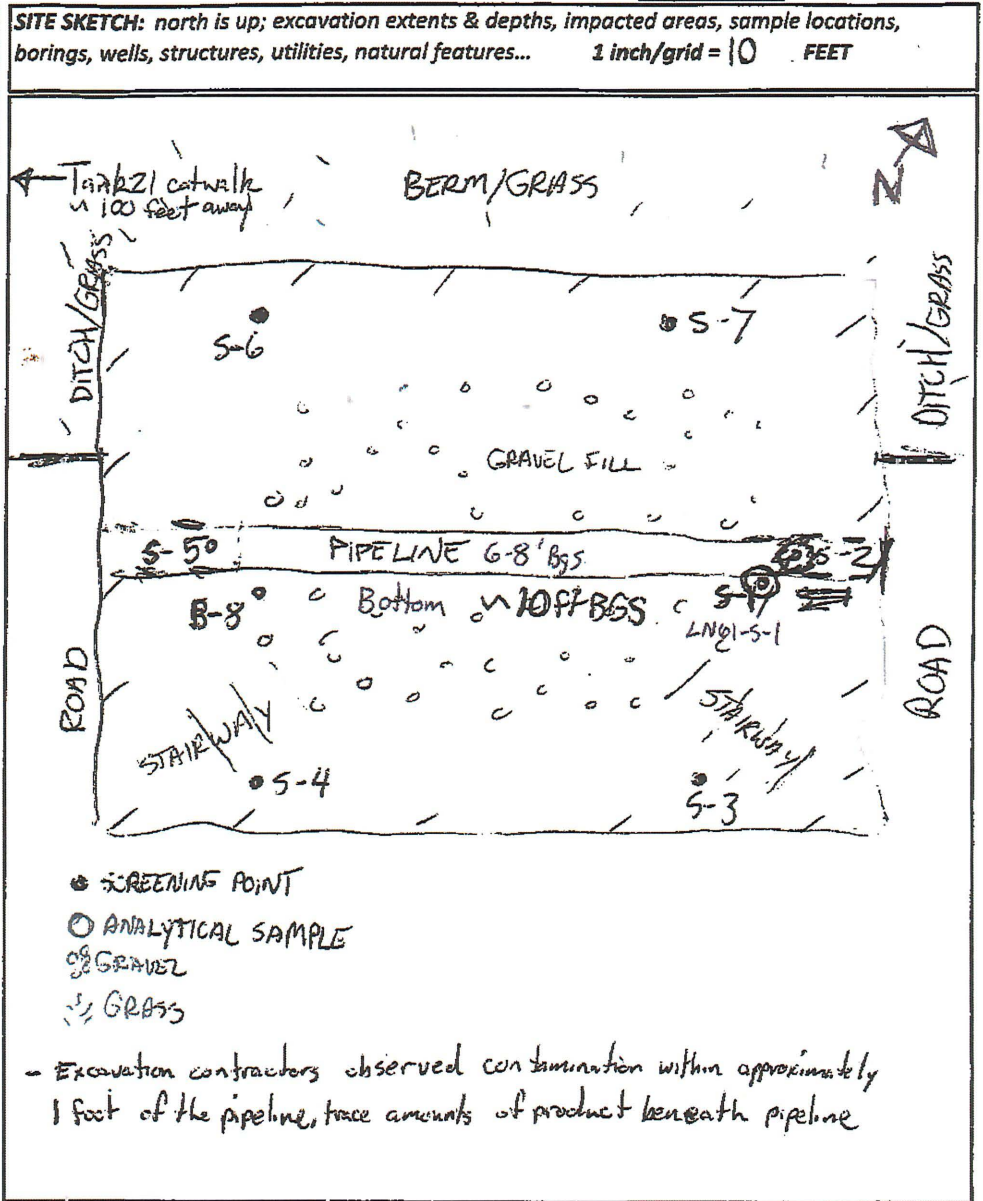 SITE SKETCH: north is up; excavation extents & depths, impacted areas, sample locations,
borings, wells, structures, utilities, natural features... 1 inch/grid = 10 FEET
N
Tank 21 catwalk
~ 100 feet away
BERM/GRASS
DITCH/GRASS
DITCH/GRASS
S-6
S-7
GRAVEL FILL
S-5
PIPELINE 6-8' Bgs
S-2
B-8
Bottom ~10ft BGS
S-1
LNQ1-S-1
ROAD
ROAD
STAIRWAY
STAIRWAY
S-4
S-3
SCREENING POINT
ANALYTICAL SAMPLE
GRAVEL
GRASS
- Excavation contractors observed contamination within approximately
1 foot of the pipeline, trace amounts of product beneath pipeline